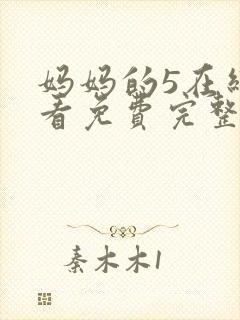 妈妈的5在线
看免费完整
秦木木1